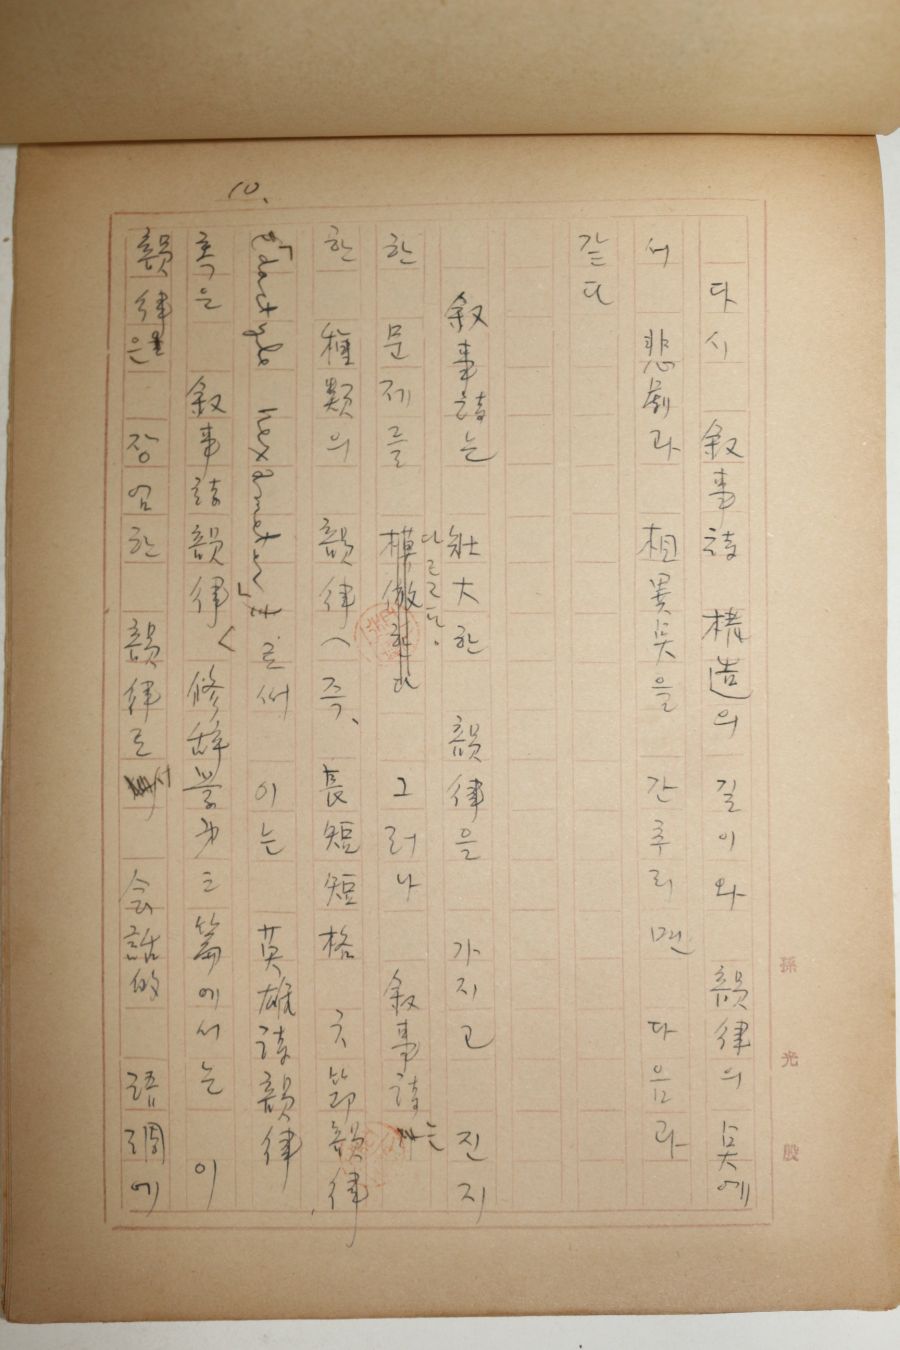 10.
다시 敍事詩 構造의 길이와 韻律의 点에
서 悲劇과 相異点을 간추리면 다음과
같다
敍事詩는 壯大한 韻律을 가지고 진지
한 문제를 다루른다. 그러나 敍事詩는
한 種類의 韻律(즉、長短短格 六節韻律
「dactylic hexameter」로써 이는 英雄詩韻律
혹은 敍事詩韻律く修辞学 三篇에서는 이
韻律은 장엄한 韻律로서 会話的 語調에
孫 光 殷